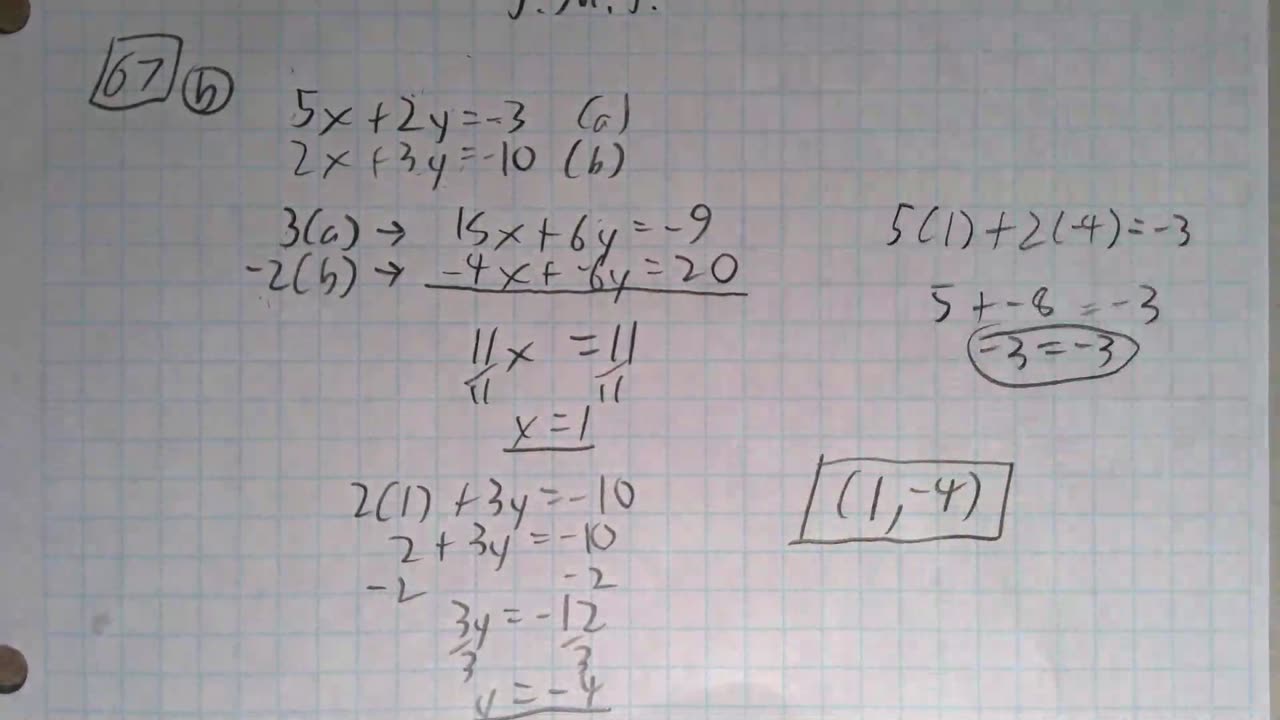 J.M.J.
67 b
5x + 2y = -3 (a)
2x + 3y = -10 (b)
3(a) → 15x + 6y = -9
-2(b) → -4x + -6y = 20
11x = 11
11 11
x = 1
2(1) + 3y = -10
2 + 3y = -10
-2 -2
3y = -12
3 3
y = -4
5(1) + 2(-4) = -3
5 + -8 = -3
-3 = -3
(1, -4)